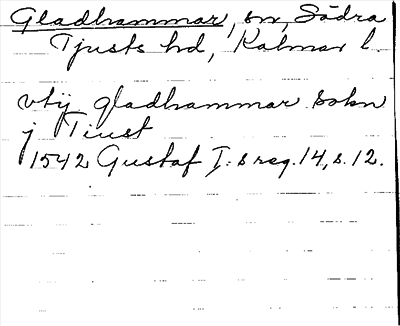 Gladhammar, sn, Södra
Tjusts hd, Kalmar l.
vtij gladhammar sokn
j Tiust
1542 Gustaf I:s reg. 14, s. 12.